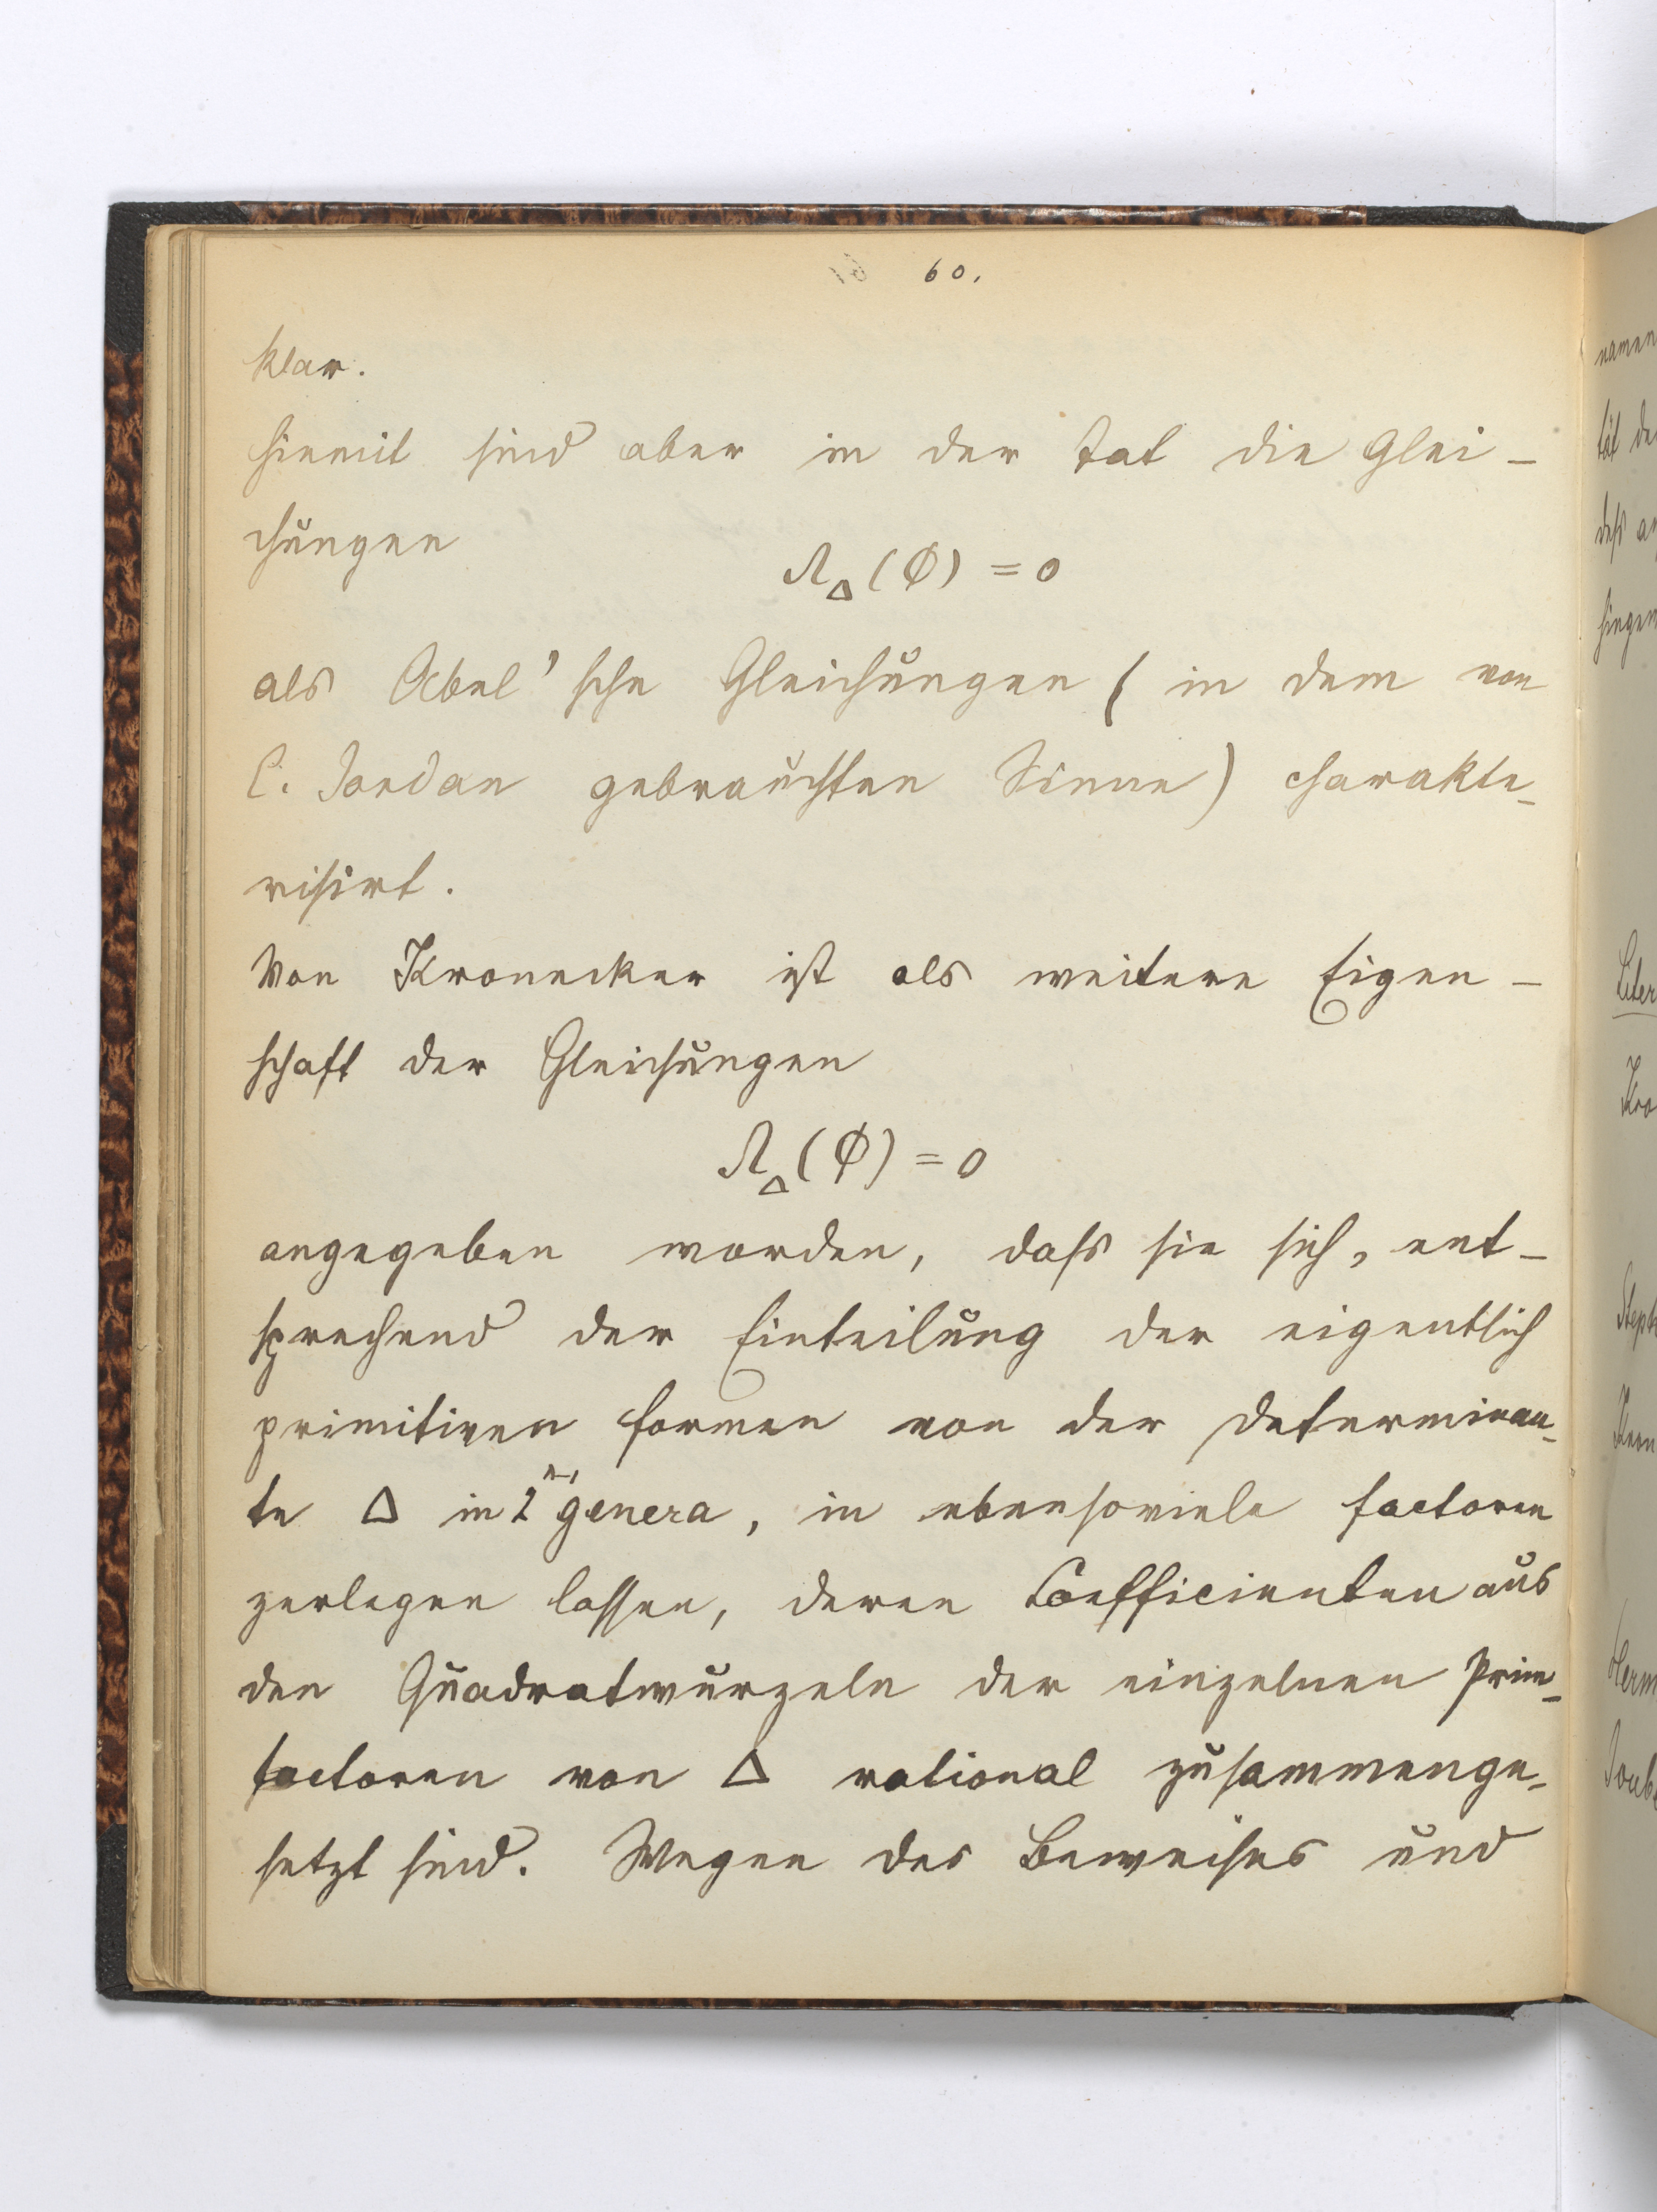 60.
klar.
Hiemit sind aber in der Tat die Glei-
chungen
Λ_Δ(ϕ) = 0
als Abel'sche Gleichungen (in dem von
C. Jordan gebrauchten Sinne) charakte-
risirt.
Von Kronecker ist als weitere Eigen-
schaft der Gleichungen
Λ_Δ(ϕ) = 0
angegeben worden, dass sie sich, ent-
sprechend der Einteilung der eigentlich
primitiven Formen von der Determinan-
te Δ in 2 genera, in ebensoviele Factoren
zerlegen lassen, deren Coefficienten aus
den Quadratwurzeln der einzelnen Prim-
factoren von Δ rational zusammenge-
setzt sind. Wegen des Beweises und